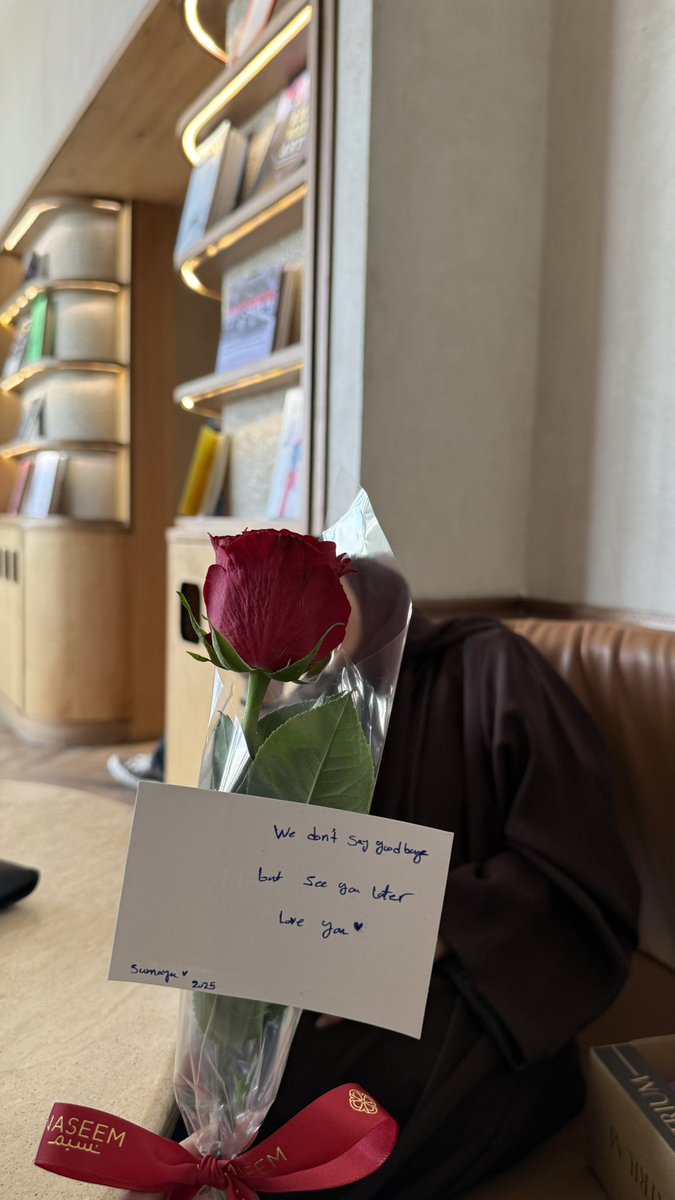 We don't say goodbuye
but see you later
Love you ♥
Sumaya ♥
2025
NASEEM
نسيم
NASEEM
ATRIUM